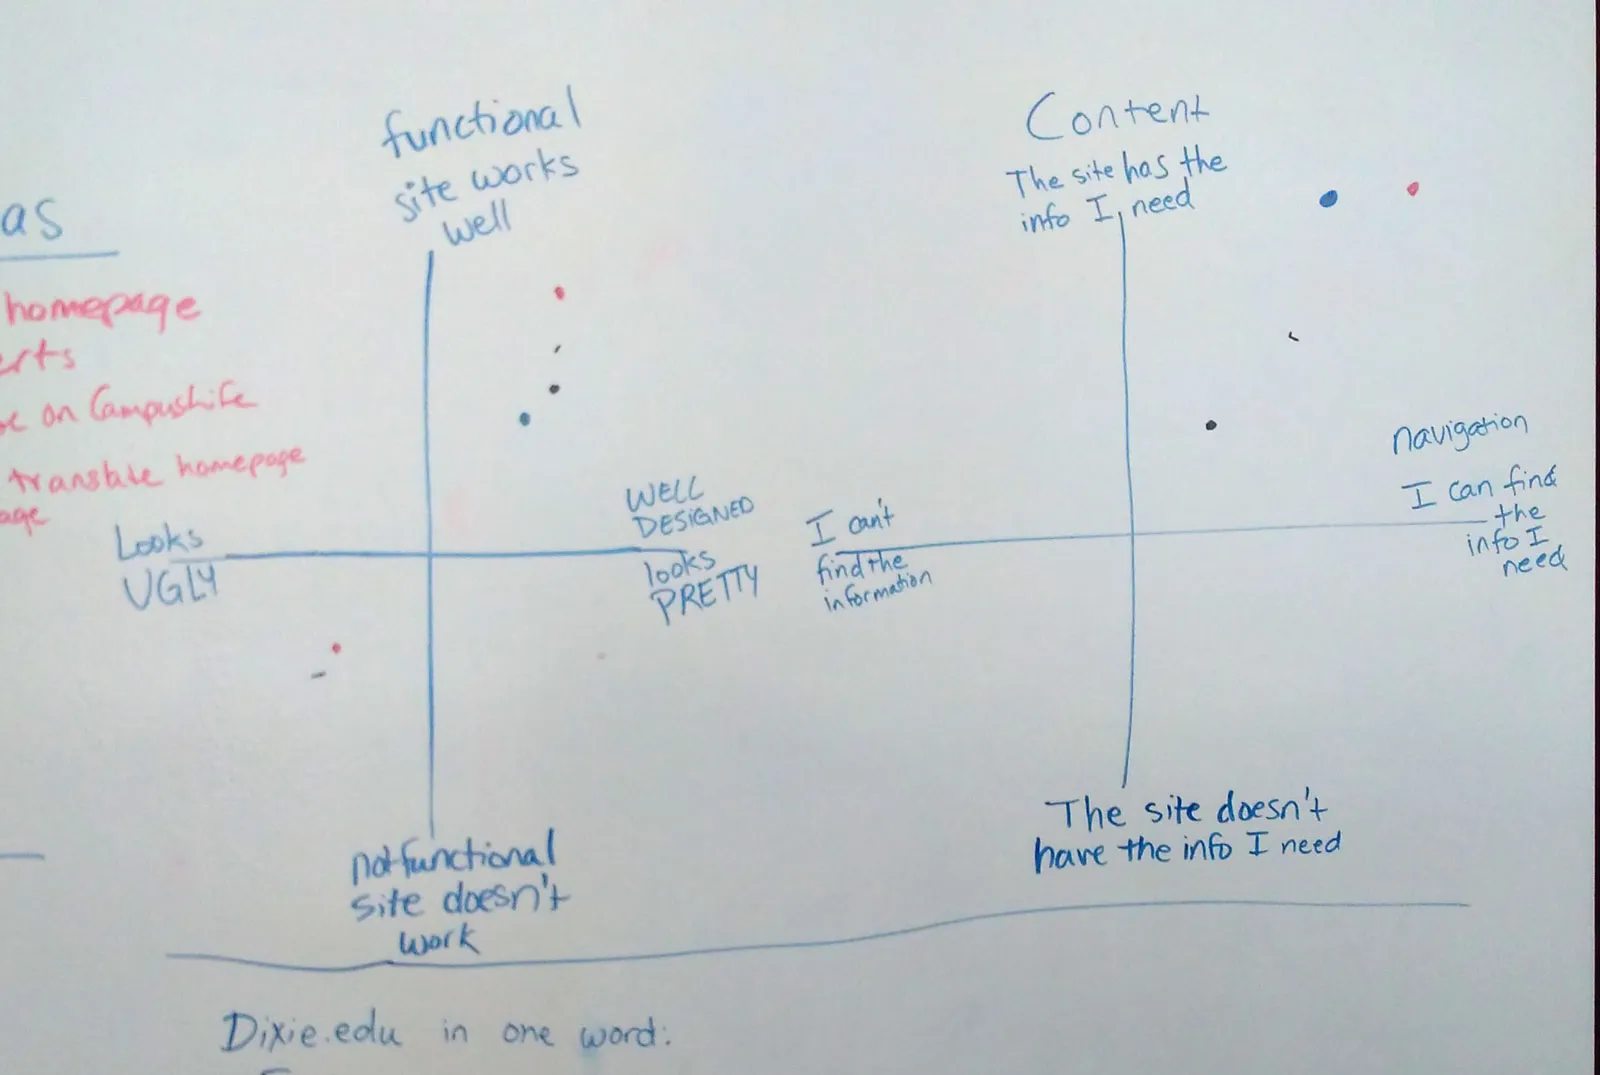 as
homepage
erts
on CampusLife
translate homepage
age
functional
site works
well
Looks
UGLY
WELL
DESIGNED
looks
PRETTY
not functional
site doesn't
work
Content
The site has the
info I need
I can't
find the
information
navigation
I can find
the
info I
need
The site doesn't
have the info I need
Dixie.edu in one word: